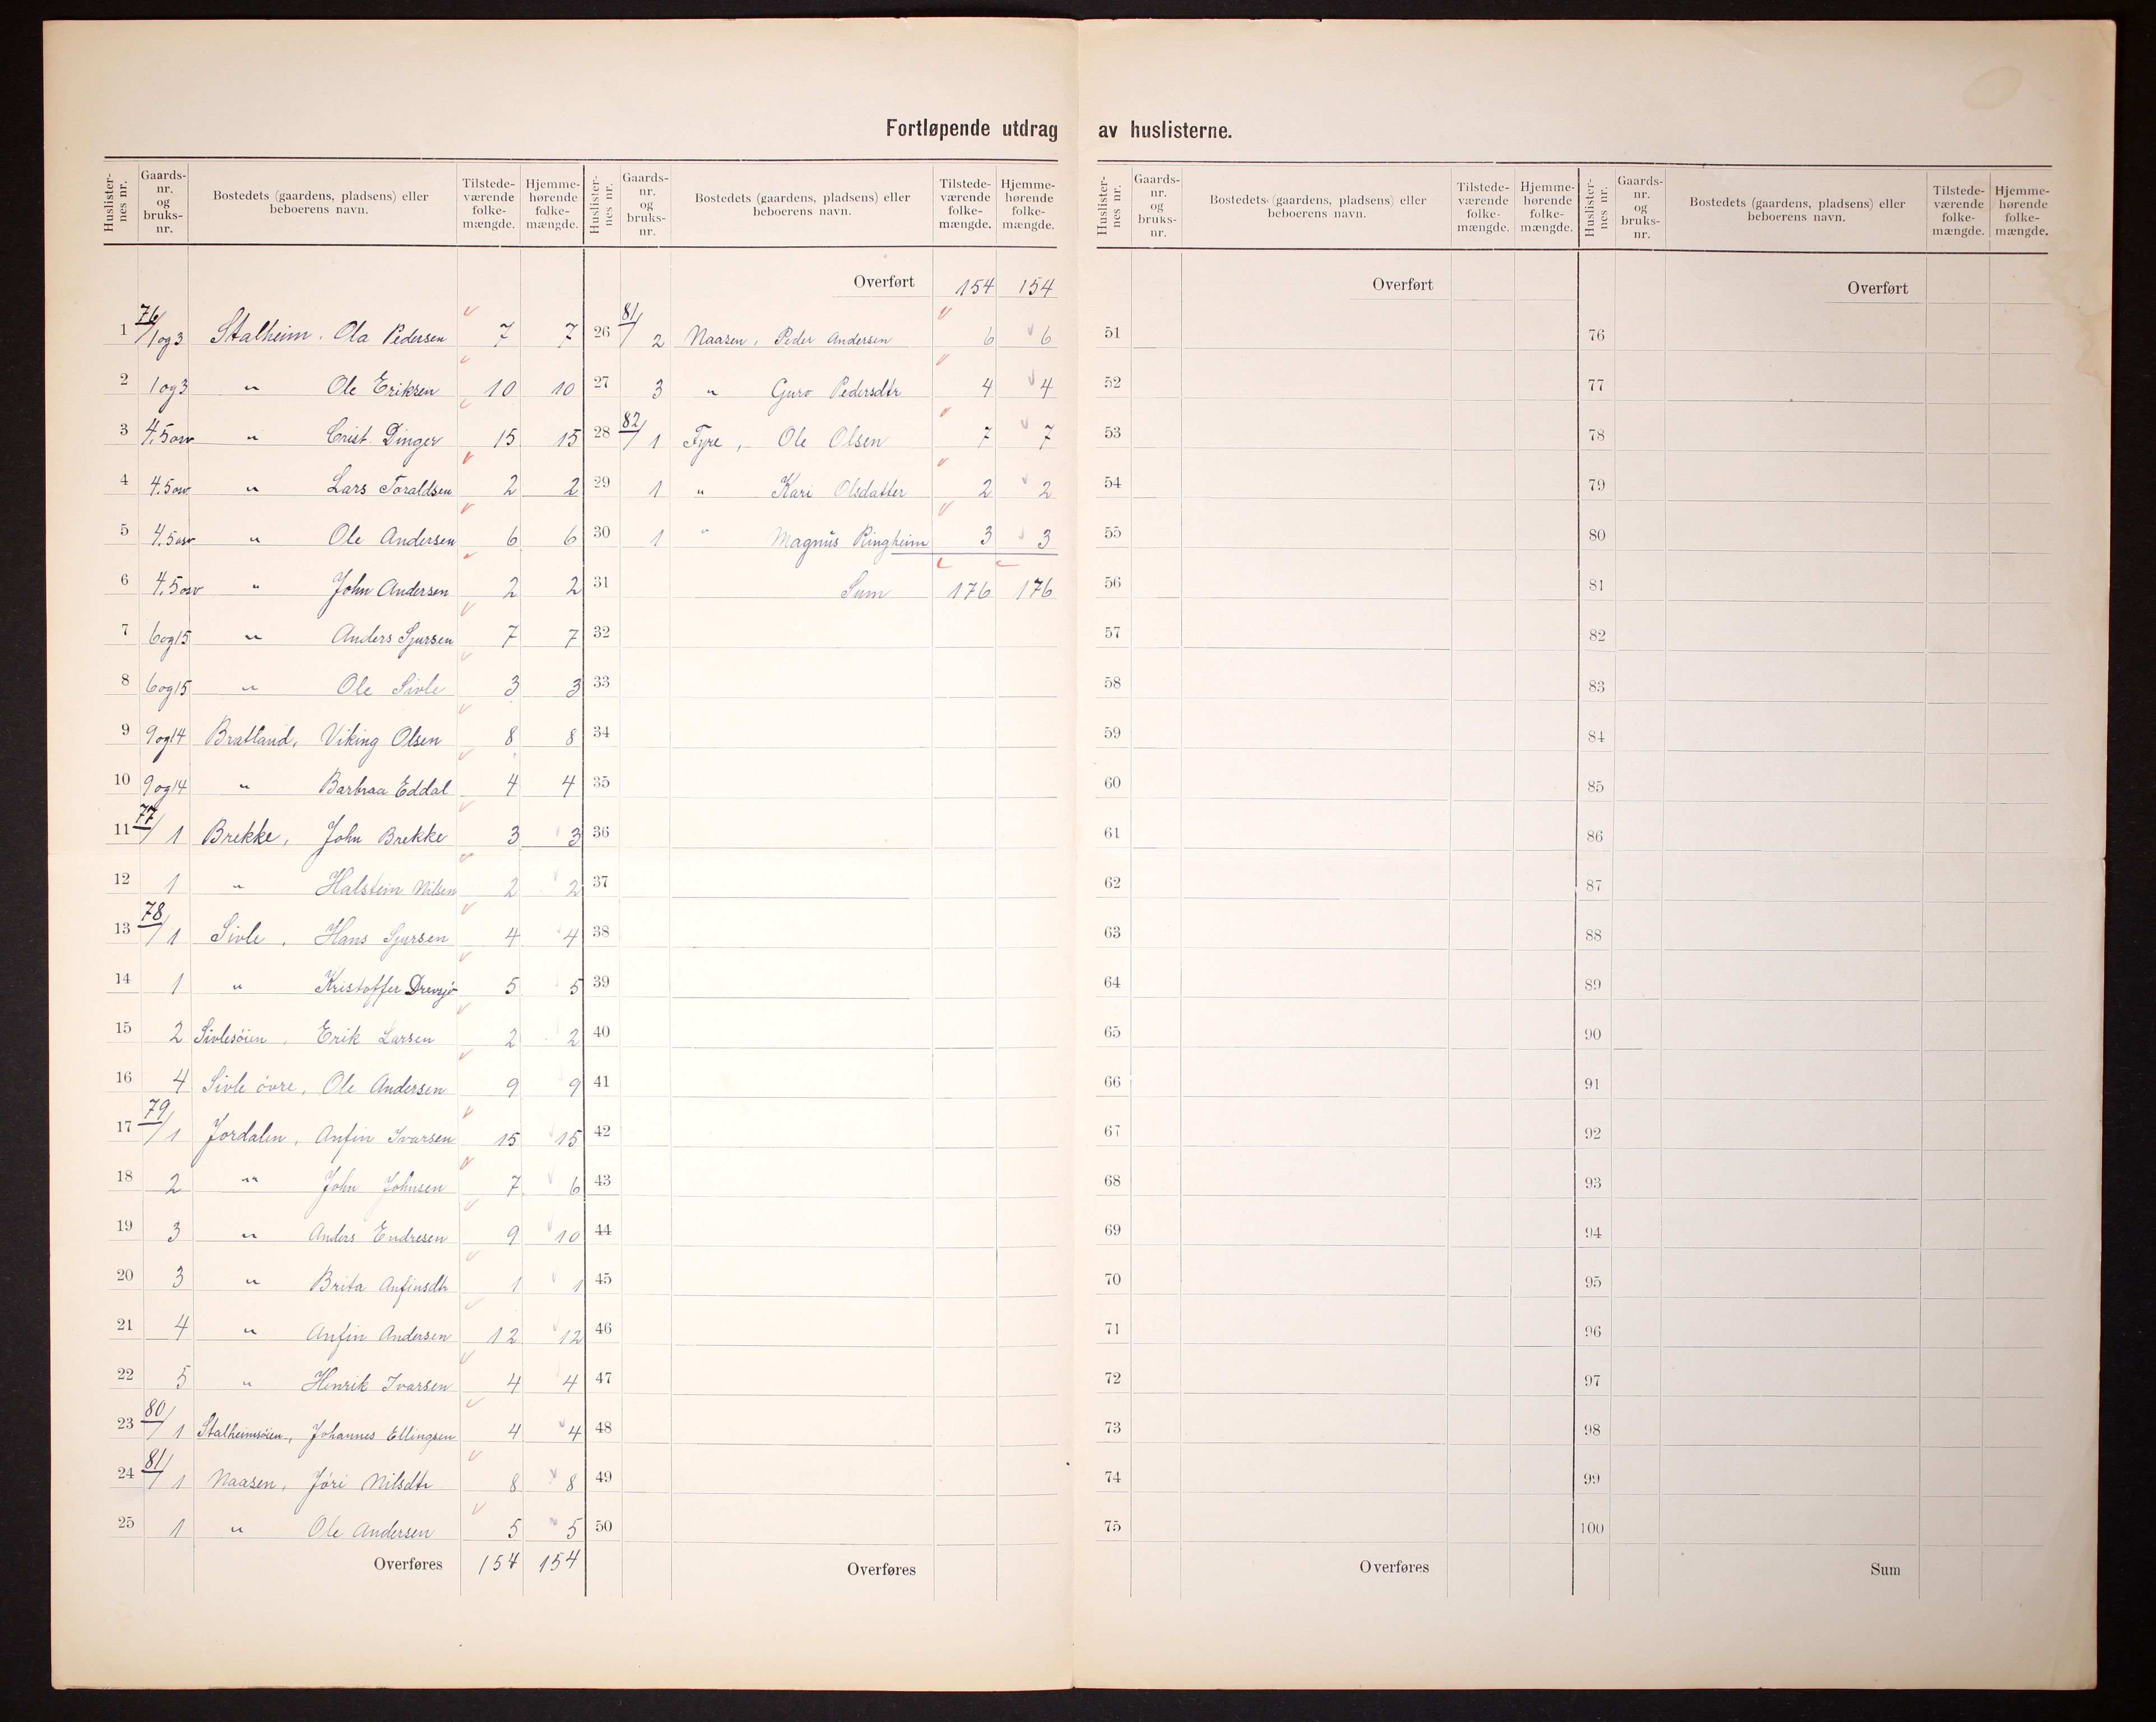 Fortløpende utdrag av huslisterne.
Huslisternes nr. Gaards-nr. og bruks-nr. Bostedets (gaardens, pladsens) eller beboerens navn. Tilstedeværende folkemængde. Hjemmehørende folkemængde.
1 76/1og3 Stalheim, Ola Pedersen 7 7
2 1og3 " Ole Eriksen 10 10
3 4.5osv " Crist. Dinger 15 15
4 4.5osv " Lars Toraldsen 2 2
5 4.5osv " Ole Andersen 6 6
6 4.5osv " John Andersen 2 2
7 6og15 " Anders Sjursen 7 7
8 6og15 " Ole Sivle 3 3
9 9og14 Brattand, Viking Olsen 8 8
10 9og14 " Barbraa Eddal 4 4
11 77/1 Brekke, John Brekke 3 3
12 1 " Halstein Nilsen 2 2
13 78/1 Sivle, Hans Sjursen 4 4
14 1 " Kristoffer 5 5
15 2 Sivlesöien, Erik Larsen 2 2
16 4 Sivle övre, Ole Andersen 9 9
17 79/1 Jordalen, Anfin Ivarsen 15 15
18 2 " John Johnsen 7 6
19 3 " Anders Endresen 9 10
20 3 " Brita Anfinsdtr 1 1
21 4 " Anfin Andersen 12 12
22 5 " Henrik Ivarsen 4 4
23 80/1 Stalheimsöien, Johannes Ellingsen 4 4
24 81/1 Naasen, Jöri Nilsdtr 8 8
25 1 " Ole Andersen 5 5
Overføres 154 154
Huslisternes nr. Gaards-nr. og bruks-nr. Bostedets (gaardens, pladsens) eller beboerens navn. Tilstedeværende folkemængde. Hjemmehørende folkemængde.
Overført 154 154
26 81/2 Naasen, Peder Andersen 6 6
27 3 " Guro Pedersdtr 4 4
28 82/1 Fyre, Ole Olsen 7 7
29 1 " Kari Olsdatter 2 2
30 1 " Magnus Ringheim 3 3
31 Sum 176 176
32
33
34
35
36
37
38
39
40
41
42
43
44
45
46
47
48
49
50
Overføres
Huslisternes nr. Gaards-nr. og bruks-nr. Bostedets (gaardens, pladsens) eller beboerens navn. Tilstedeværende folkemængde. Hjemmehørende folkemængde.
Overført
51
52
53
54
55
56
57
58
59
60
61
62
63
64
65
66
67
68
69
70
71
72
73
74
75
Overføres
Huslisternes nr. Gaards-nr. og bruks-nr. Bostedets (gaardens, pladsens) eller beboerens navn. Tilstedeværende folkemængde. Hjemmehørende folkemængde.
Overført
76
77
78
79
80
81
82
83
84
85
86
87
88
89
90
91
92
93
94
95
96
97
98
99
100
Sum